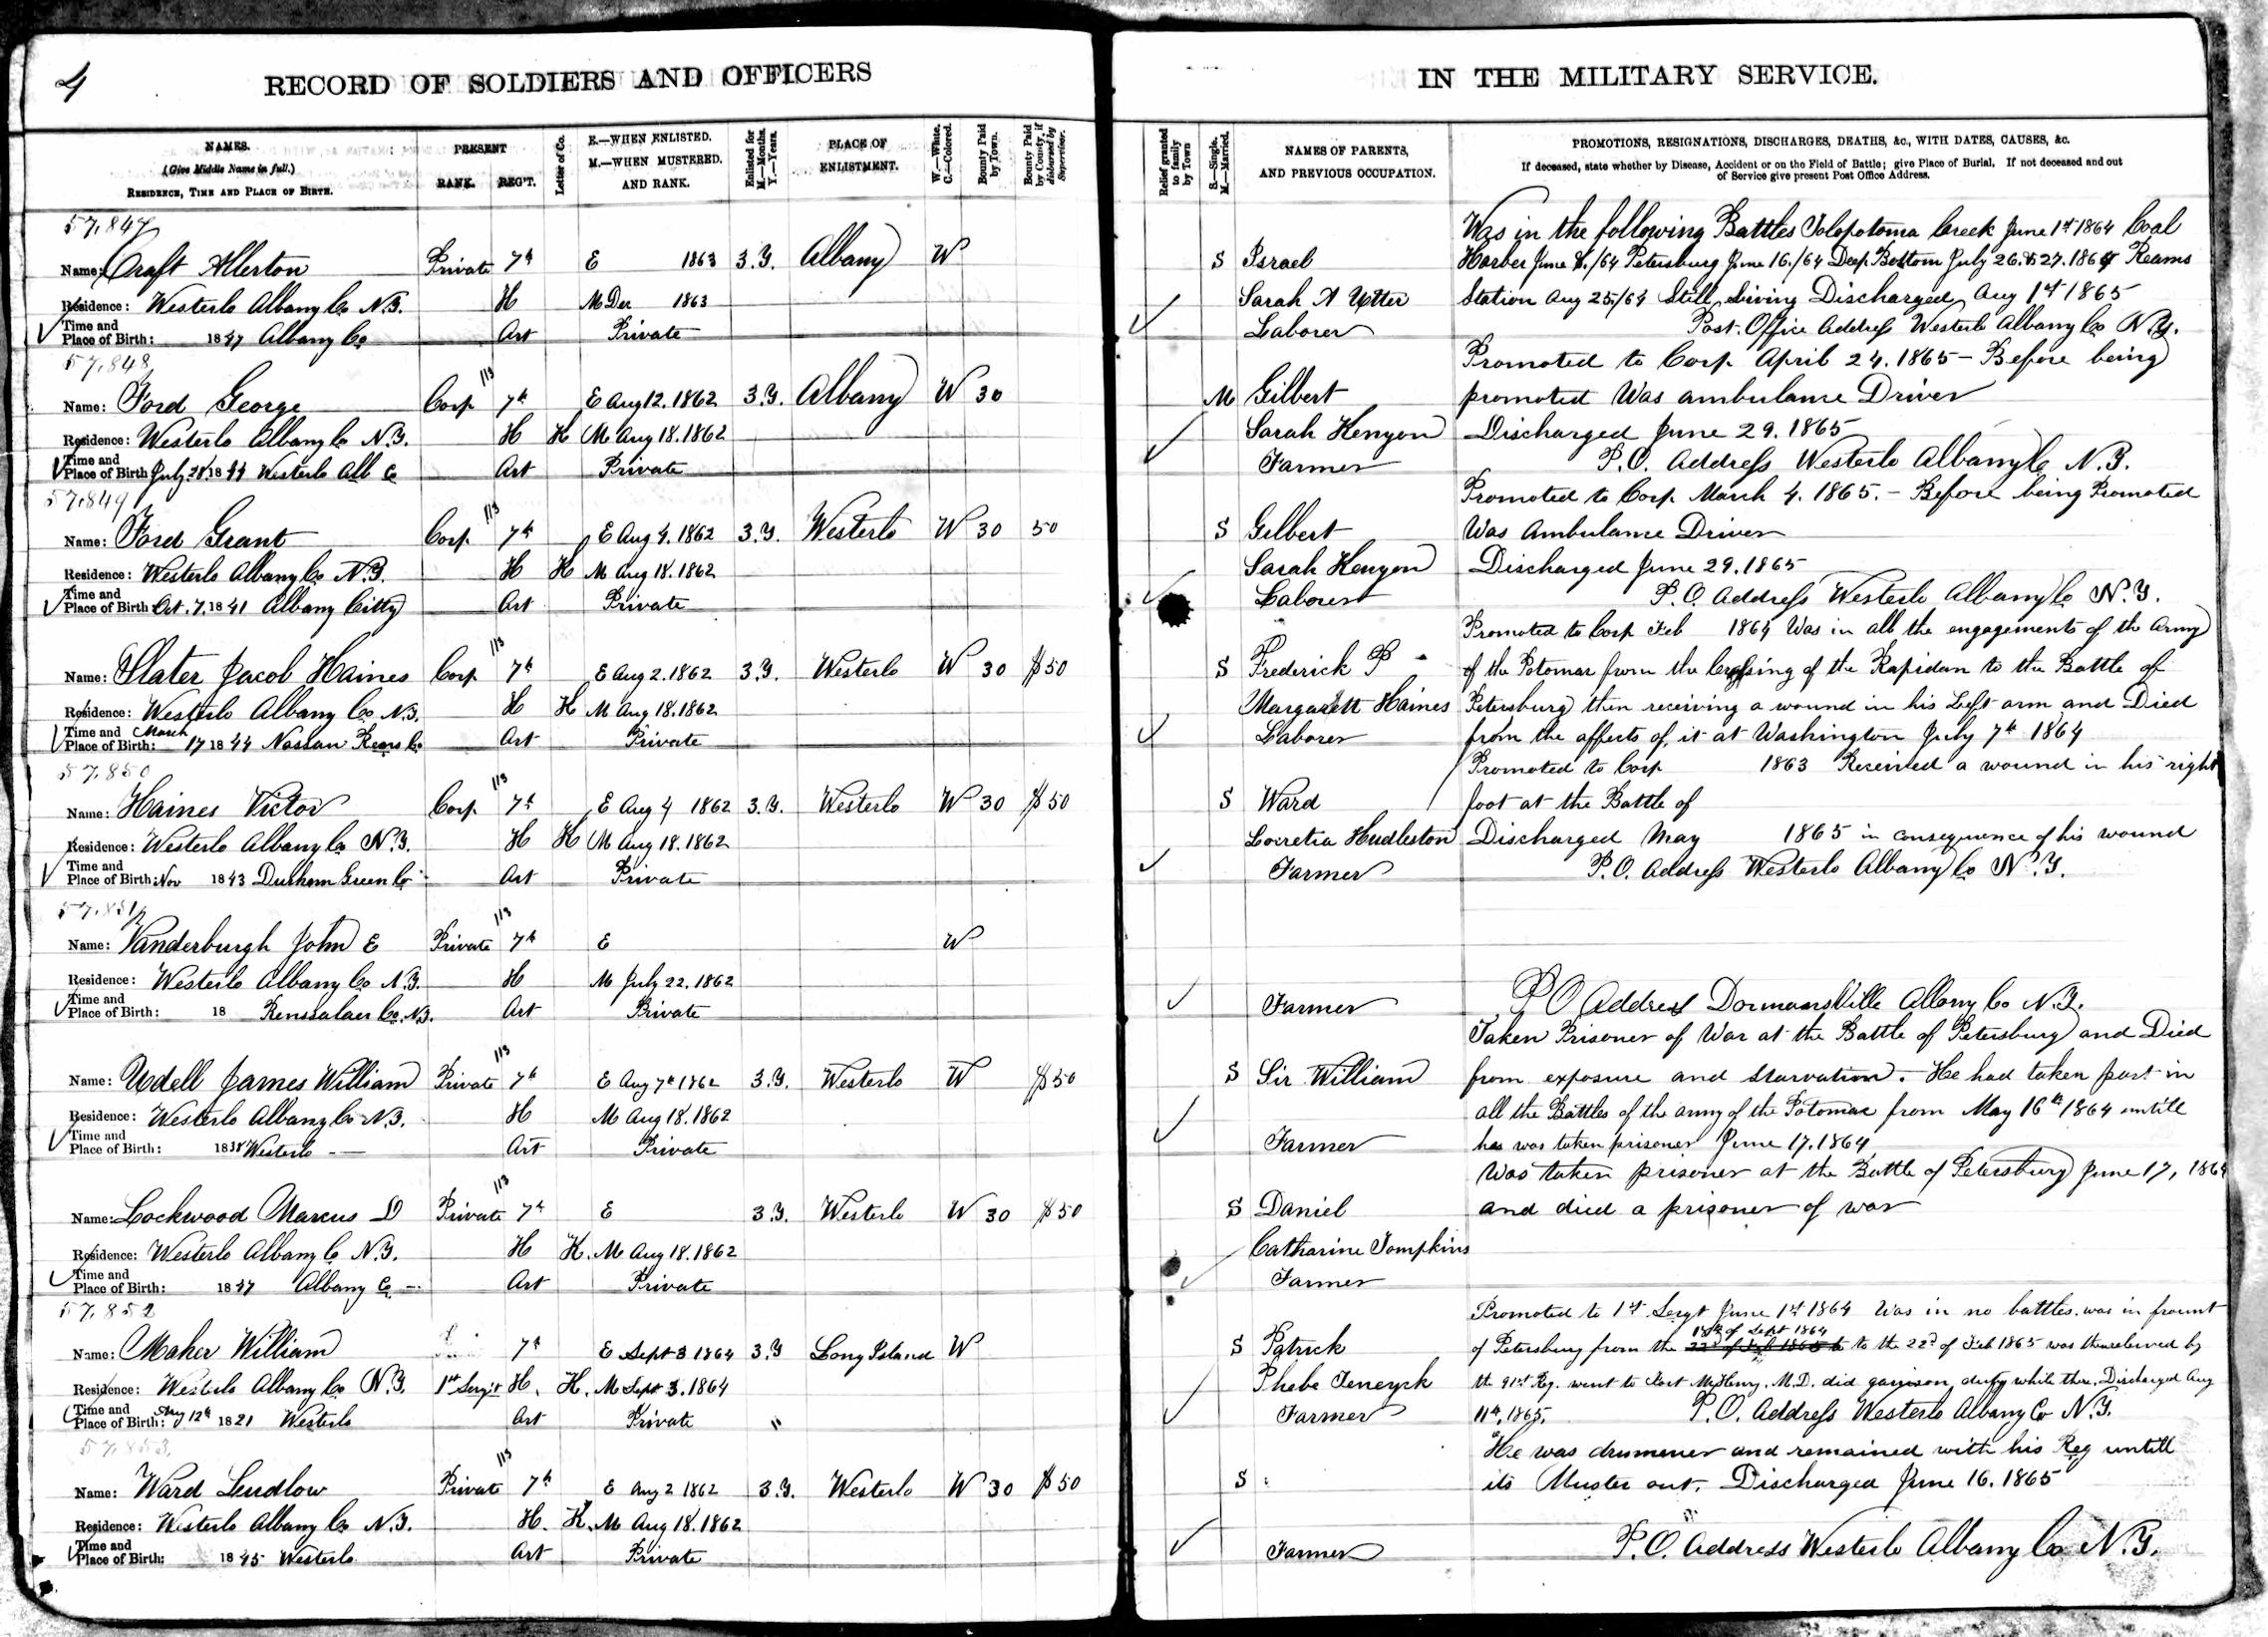 4
RECORD OF SOLDIERS AND OFFICERS
IN THE MILITARY SERVICE.
NAMES.
(Give Middle Name in full.)
RESIDENCE, TIME AND PLACE OF BIRTH.
PRESENT
RANK. REG'T.
Letter of Co.
E.—WHEN ENLISTED.
M.—WHEN MUSTERED.
AND RANK.
Enlisted for
M.—Months.
Y.—Years.
PLACE OF
ENLISTMENT.
W.—White.
C.—Colored.
Bounty Paid
by Town.
Bounty Paid
by County, if
disbursed by
Supervisor.
Relief granted
to family
by Town
S.—Single.
M.—Married.
NAMES OF PARENTS,
AND PREVIOUS OCCUPATION.
PROMOTIONS, RESIGNATIONS, DISCHARGES, DEATHS, &c., WITH DATES, CAUSES, &c.
If deceased, state whether by Disease, Accident or on the Field of Battle; give Place of Burial. If not deceased and out
of Service give present Post Office Address.
57,847
Name: Craft Allerton Private 7th E 1863 3.Y. Albany W
Residence: Westerlo Albany Co N.Y. H M Dec 1863
Time and
Place of Birth: 1847 Albany Co Art Private
Was in the following Battles Tolopotoma Creek June 1st 1864 Coal
S Israel Harber June 8./64 Petersburg June 16./64 Deep Bottom July 26.&27.1864 Reams
Sarah A Utter Station Aug 25/64 Still Living Discharged Aug 1st 1865
Laborer Post. Office Address Westerlo Albany Co N.Y.
57,848
113
Name: Ford George Corp 7th E Aug 12.1862 3.Y. Albany W 30
Residence: Westerlo Albany Co N.Y. H K M Aug 18.1862
Time and
Place of Birth July 28 1844 Westerlo Alb Co Art Private
Promoted to Corp April 24.1865 - Before being
M Gilbert promoted Was ambulance Driver
Sarah Kenyon Discharged June 29.1865
Farmer P.O. Address Westerlo Albany Co N.Y.
57,849
113
Name: Ford Grant Corp 7th E Aug 4.1862 3.Y. Westerlo W 30 50
Residence: Westerlo Albany Co N.Y. H K M Aug 18.1862
Time and
Place of Birth Oct.7.1841 Albany Citty Art Private
Promoted to Corp March 4.1865. - Before being Promoted
S Gilbert Was Ambulance Driver
Sarah Kenyon Discharged June 29.1865
Laborer P.O. Address Westerlo Albany Co N.Y.
113
Name: Slater Jacob Haines Corp 7th E Aug 2.1862 3.Y. Westerlo W 30 $50
Residence: Westerlo Albany Co N.Y. H K M Aug 18.1862
Time and March
Place of Birth: 17 1844 Nassau Renss Co Art Private
Promoted to Corp Feb 1864 Was in all the engagements of the Army
S Frederick P of the Potomac from the Crossing of the Rapidan to the Battle of
Margarett Haines Petersburg then receiving a wound in his Left arm and Died
Laborer from the affects of it at Washington July 7th 1864
57,850
113
Name: Haines Victor Corp 7th E Aug 4 1862 3.Y. Westerlo W 30 $50
Residence: Westerlo Albany Co N.Y. H K M Aug 18.1862
Time and
Place of Birth: Nov 1843 Durham Green Co Art Private
Promoted to Corp 1863 Received a wound in his right
S Ward foot at the Battle of
Locretia Hudleston Discharged May 1865 in consequence of his wound
Farmer P.O. Address Westerlo Albany Co N.Y.
57,851½
113
Name: Vanderburgh John E Private 7th E W
Residence: Westerlo Albany Co N.Y. H M July 22.1862
Time and
Place of Birth: 18 Renssalaer Co. N.Y. Art Private
Farmer P O Address DormansVille Albany Co N.Y.
113
Name: Udell James William Private 7th E Aug 7th 1862 3.Y. Westerlo W $50
Residence: Westerlo Albany Co N.Y. H M Aug 18.1862
Time and
Place of Birth: 1838 Westerlo Art Private
Taken Prisoner of War at the Battle of Petersburg and Died
S Sir William from exposure and starvation. He had taken part in
all the Battles of the army of the Potomac from May 16th 1864 untill
Farmer he was taken prisoner June 17.1864
113
Name: Lockwood Marcus D Private 7th E 3.Y. Westerlo W 30 $50
Residence: Westerlo Albany Co N.Y. H K. M Aug 18.1862
Time and
Place of Birth: 1847 Albany Co Art Private
Was taken prisoner at the Battle of Petersburg June 17, 1864
S Daniel and died a prisoner of war
Catharine Tompkins
Farmer
57,852
Name: Maher William 7th E Sept 3 1864 3.Y Long Island W
Residence: Westerlo Albany Co N.Y. 1st Serg't H. K. M Sept 3.1864
Time and
Place of Birth: Aug 12th 1821 Westerlo Art Private "
Promoted to 1st Sergt June 1st 1864 Was in no battles. was in frount
18th of Sept 1864
S Patrick of Petersburg from the 22d of Feb 1865 to to the 22d of Feb 1865 was then releived by
Phebe Teneyck the 91st Reg. went to Fort McHenry. M.D. did garrison duty while there. Discharged Aug
Farmer 11th, 1865. P.O. Address Westerlo Albany Co N.Y.
57,853.
113
Name: Ward Ludlow Private 7th E Aug 2 1862 3.Y. Westerlo W 30 $50
Residence: Westerlo Albany Co N.Y. H. K. M Aug 18.1862
Time and
Place of Birth: 1845 Westerlo Art Private
He was drummer and remained with his Reg untill
S its Muster out. Discharged June 16.1865
Farmer P.O. Address Westerlo Albany Co N.Y.